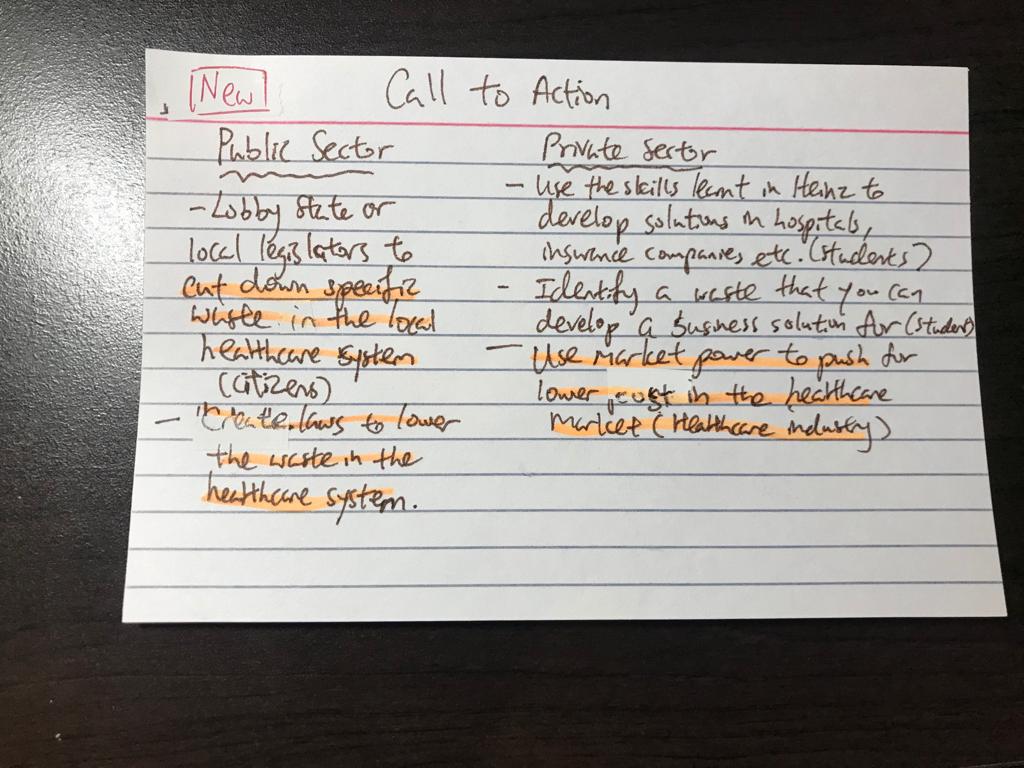 New
Call to Action
Public Sector
- Lobby State or
local legislators to
cut down specific
waste in the local
healthcare system
(citizens)
- Create laws to lower
the waste in the
healthcare system.
Private Sector
- Use the skills learnt in Heinz to
develop solutions in hospitals,
insurance companies, etc. (students)
- Identify a waste that you can
develop a business solution for (student)
- Use market power to push for
lower cost in the healthcare
market (Healthcare industry)